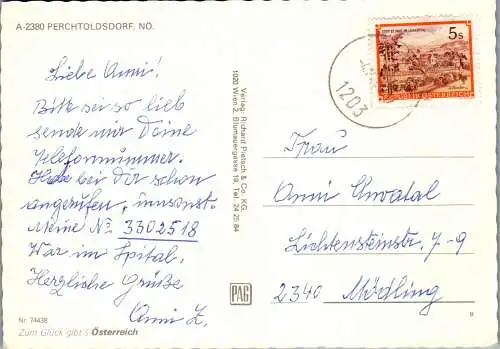 A-2380 PERCHTOLDSDORF, NÖ.
Liebe Anni!
Bitte sei so lieb
sende mir Deine
Telefonnummer.
Habe bei Dir schon
angerufen, umsonst.
Meine No 3302518
War im Spital.
Herzliche Grüße
Anni Z.
Nr. 74438
Zum Glück gibt's Österreich
Verlag: Richard Pietsch & Co. KG.
1020 Wien 2, Blumauergasse 19, Tel. 24 25 84
PAG
5s
1203
Frau
Anni Chvatal
Lichtensteinstr. 7-9
2340 Mödling